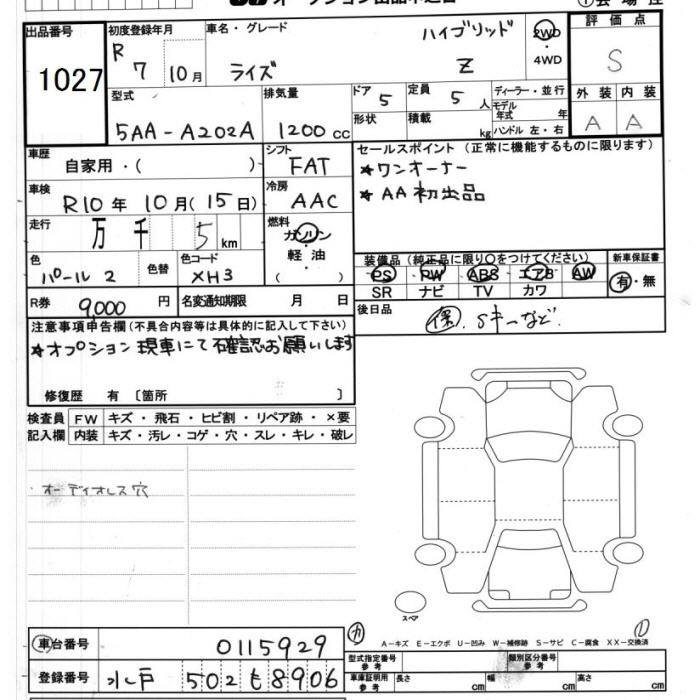 出品番号 1027
初度登録年月 R 7 10月
車名・グレード ライズ ハイブリッド Z
2WD・4WD
評価点 S
外装 A 内装 A
型式 5AA-A202A
排気量 1200cc
ドア 5 形状
定員 5人 積載 kg
ディーラー・並行
モデル年式 年
ハンドル 左・右
車歴 自家用・( )
シフト FAT
セールスポイント (正常に機能するものに限ります)
★ワンオーナー
★AA初出品
車検 R10年10月(15日)
冷房 AAC
走行 万 千 5 km
燃料 ガソリン・軽油・( )
色 パール2 色替
色コード XH3
装備品 (純正品に限り○をつけてください)
PS PW ABS エアB AW
SR ナビ TV カワ
新車保証書 有・無
R券 9,000円
名変通知期限 月 日
後日品 保. Sキーなど.
注意事項申告欄(不具合内容等は具体的に記入して下さい)
★オプション現車にて確認お願いします
修復歴 有〔箇所 〕
検査員記入欄
FW キズ・飛石・ヒビ割・リペア跡・×要
内装 キズ・汚レ・コゲ・穴・スレ・キレ・破レ
・オーディオレス穴
スペア
A-キズ E-エクボ U-凹み W-補修跡 S-サビ C-腐食 XX-交換済
車台番号 0115929
カ
型式指定番号 参考
類別区分番号 参考
登録番号 水戸 502 も 8906
車庫証明用参考 長さ cm 幅 cm 高さ cm